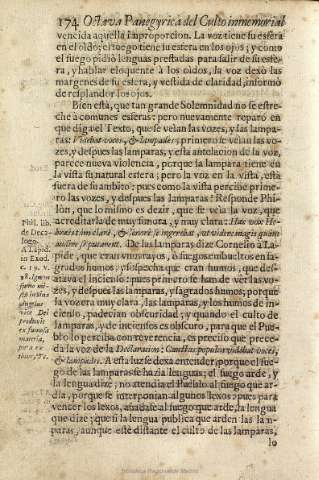 174 Octava Panegyrica del Culto inmemorial
vencida aquella improporcion. La voz tiene su esfera
en el oìdo; el fuego tiene su esfera en los ojos; y como
el fuego pidiò lenguas prestadas para salir de su esfera,
y hablar eloquente à los oìdos, la voz dexò las
margenes de su esfera, y vestida de claridad, informò
de resplandor los ojos.
Bien està, que tan grande Solemnidad no se estreche
à comunes esferas: pero nuevamente reparo en
que diga el Texto, que se velan las vozes, y las lamparas:
voces, & lampades; primero se veìan las vozes,
y despues las lamparas, y esta antelacion de la voz,
parece nueva violencia, porque la lampara tiene en
la vista su natural esfera; pero la voz en la vista, està
fuera de su ambito: pues como la vista percibe primero
las vozes, y despues las lamparas? Responde Philòn,
que lo mismo es dezir, que se veìa la voz, que
acreditarla de muy sonora, y muy clara:
De las lamparas dize Cornelio à Lapide,
que eran unos rayos, ò fuegos embueltos en sagrados
humos; y sospecha que eran humos, que desatava
el incienso: pues primero se han de ver las vozes,
y despues las lamparas, y sagrados humos; porque
la voz era muy clara, las lamparas, y los humos de incienso,
padecian obscuridad; y quando el culto de
lamparas, y de inciensos es obscuro, para que el Pueblo
lo perciba con reverencia, es preciso que preceda
la voz de la Declaracion: Cunctus populus videbat voces,
& lampades. A esta luz se deve entender, porque el fuego
de las lamparas se hazia lenguas; el fuego arde, y
la lengua dize; no atendia el Pueblo al fuego que ardia,
porque se interponian algunos lexos; pues para
vencer los lexos, añadase al fuego que arde, la lengua
que dize; que si la lengua publica que arden las lamparas,
aunque estè distante el culto de las lamparas,
lo
Phil. lib.
de Decalogo.
A Lapid.
in Exod.
c. 19. v.